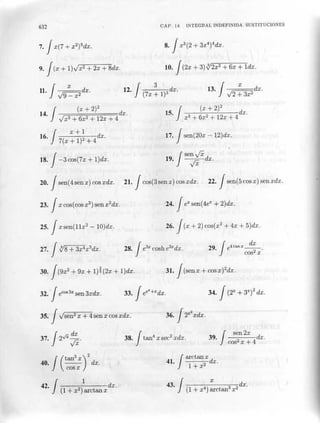 632 CAP. 14 INTEGRAL INDEFINIDA. SUSTITUCIONES
7. ∫ x(7 + x²)⁵dx. 8. ∫ x³(2 + 3x⁴)⁴dx.
9. ∫ (x + 1)√(x² + 2x + 8)dx. 10. ∫ (2x + 3)∛(2x² + 6x + 1)dx.
11. ∫ x/√(9 − x²) dx. 12. ∫ 3/(7x + 1)² dx. 13. ∫ x/√(2 + 3x²) dx.
14. ∫ (x + 2)²/√(x³ + 6x² + 12x + 4) dx. 15. ∫ (x + 2)²/(x³ + 6x² + 12x + 4) dx.
16. ∫ (x + 1)/(7(x + 1)² + 4) dx. 17. ∫ sen(20x − 12)dx.
18. ∫ −3 cos(7x + 1)dx. 19. ∫ sen √x/√x dx.
20. ∫ sen(4 sen x) cos xdx. 21. ∫ cos(3 sen x) cos xdx. 22. ∫ sen(5 cos x) sen xdx.
23. ∫ x cos(cos x²) sen x²dx. 24. ∫ eˣ sen(4eˣ + 2)dx.
25. ∫ x sen(11x² − 10)dx. 26. ∫ (x + 2) cos(x² + 4x + 5)dx.
27. ∫ ∛(8 + 3x⁴)x³dx. 28. ∫ e³ˣ cosh e³ˣdx. 29. ∫ e^(cos x) dx/cos² x.
30. ∫ (9x² + 9x + 1)(2x + 1)dx. 31. ∫ (sen x + cos x)²dx.
32. ∫ e^(cos 3x) sen 3xdx. 33. ∫ e^(eˣ+x)dx. 34. ∫ (2ˣ + 3ˣ)² dx.
35. ∫ √(sen² x + 4) sen x cos xdx. 36. ∫ 2^(x²)xdx.
37. ∫ 2^√x dx/√x. 38. ∫ tan⁴ x sec² xdx. 39. ∫ sen 2x/(cos² x + 4) dx.
40. ∫ (tan³ x/cos x)² dx. 41. ∫ arctan x/(1 + x²) dx.
42. ∫ 1/((1 + x²) arctan x) dx. 43. ∫ x/((1 + x⁴) arctan⁴ x²) dx.